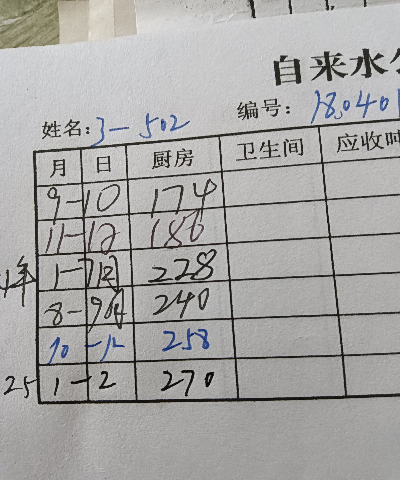 自来水公
姓名: 3-502 编号: 18.0401
月 日 厨房 卫生间 应收吨
9-10 174
11-12 186
年 1-7月 228
8-9月 240
10-12 258
25 1-2 270